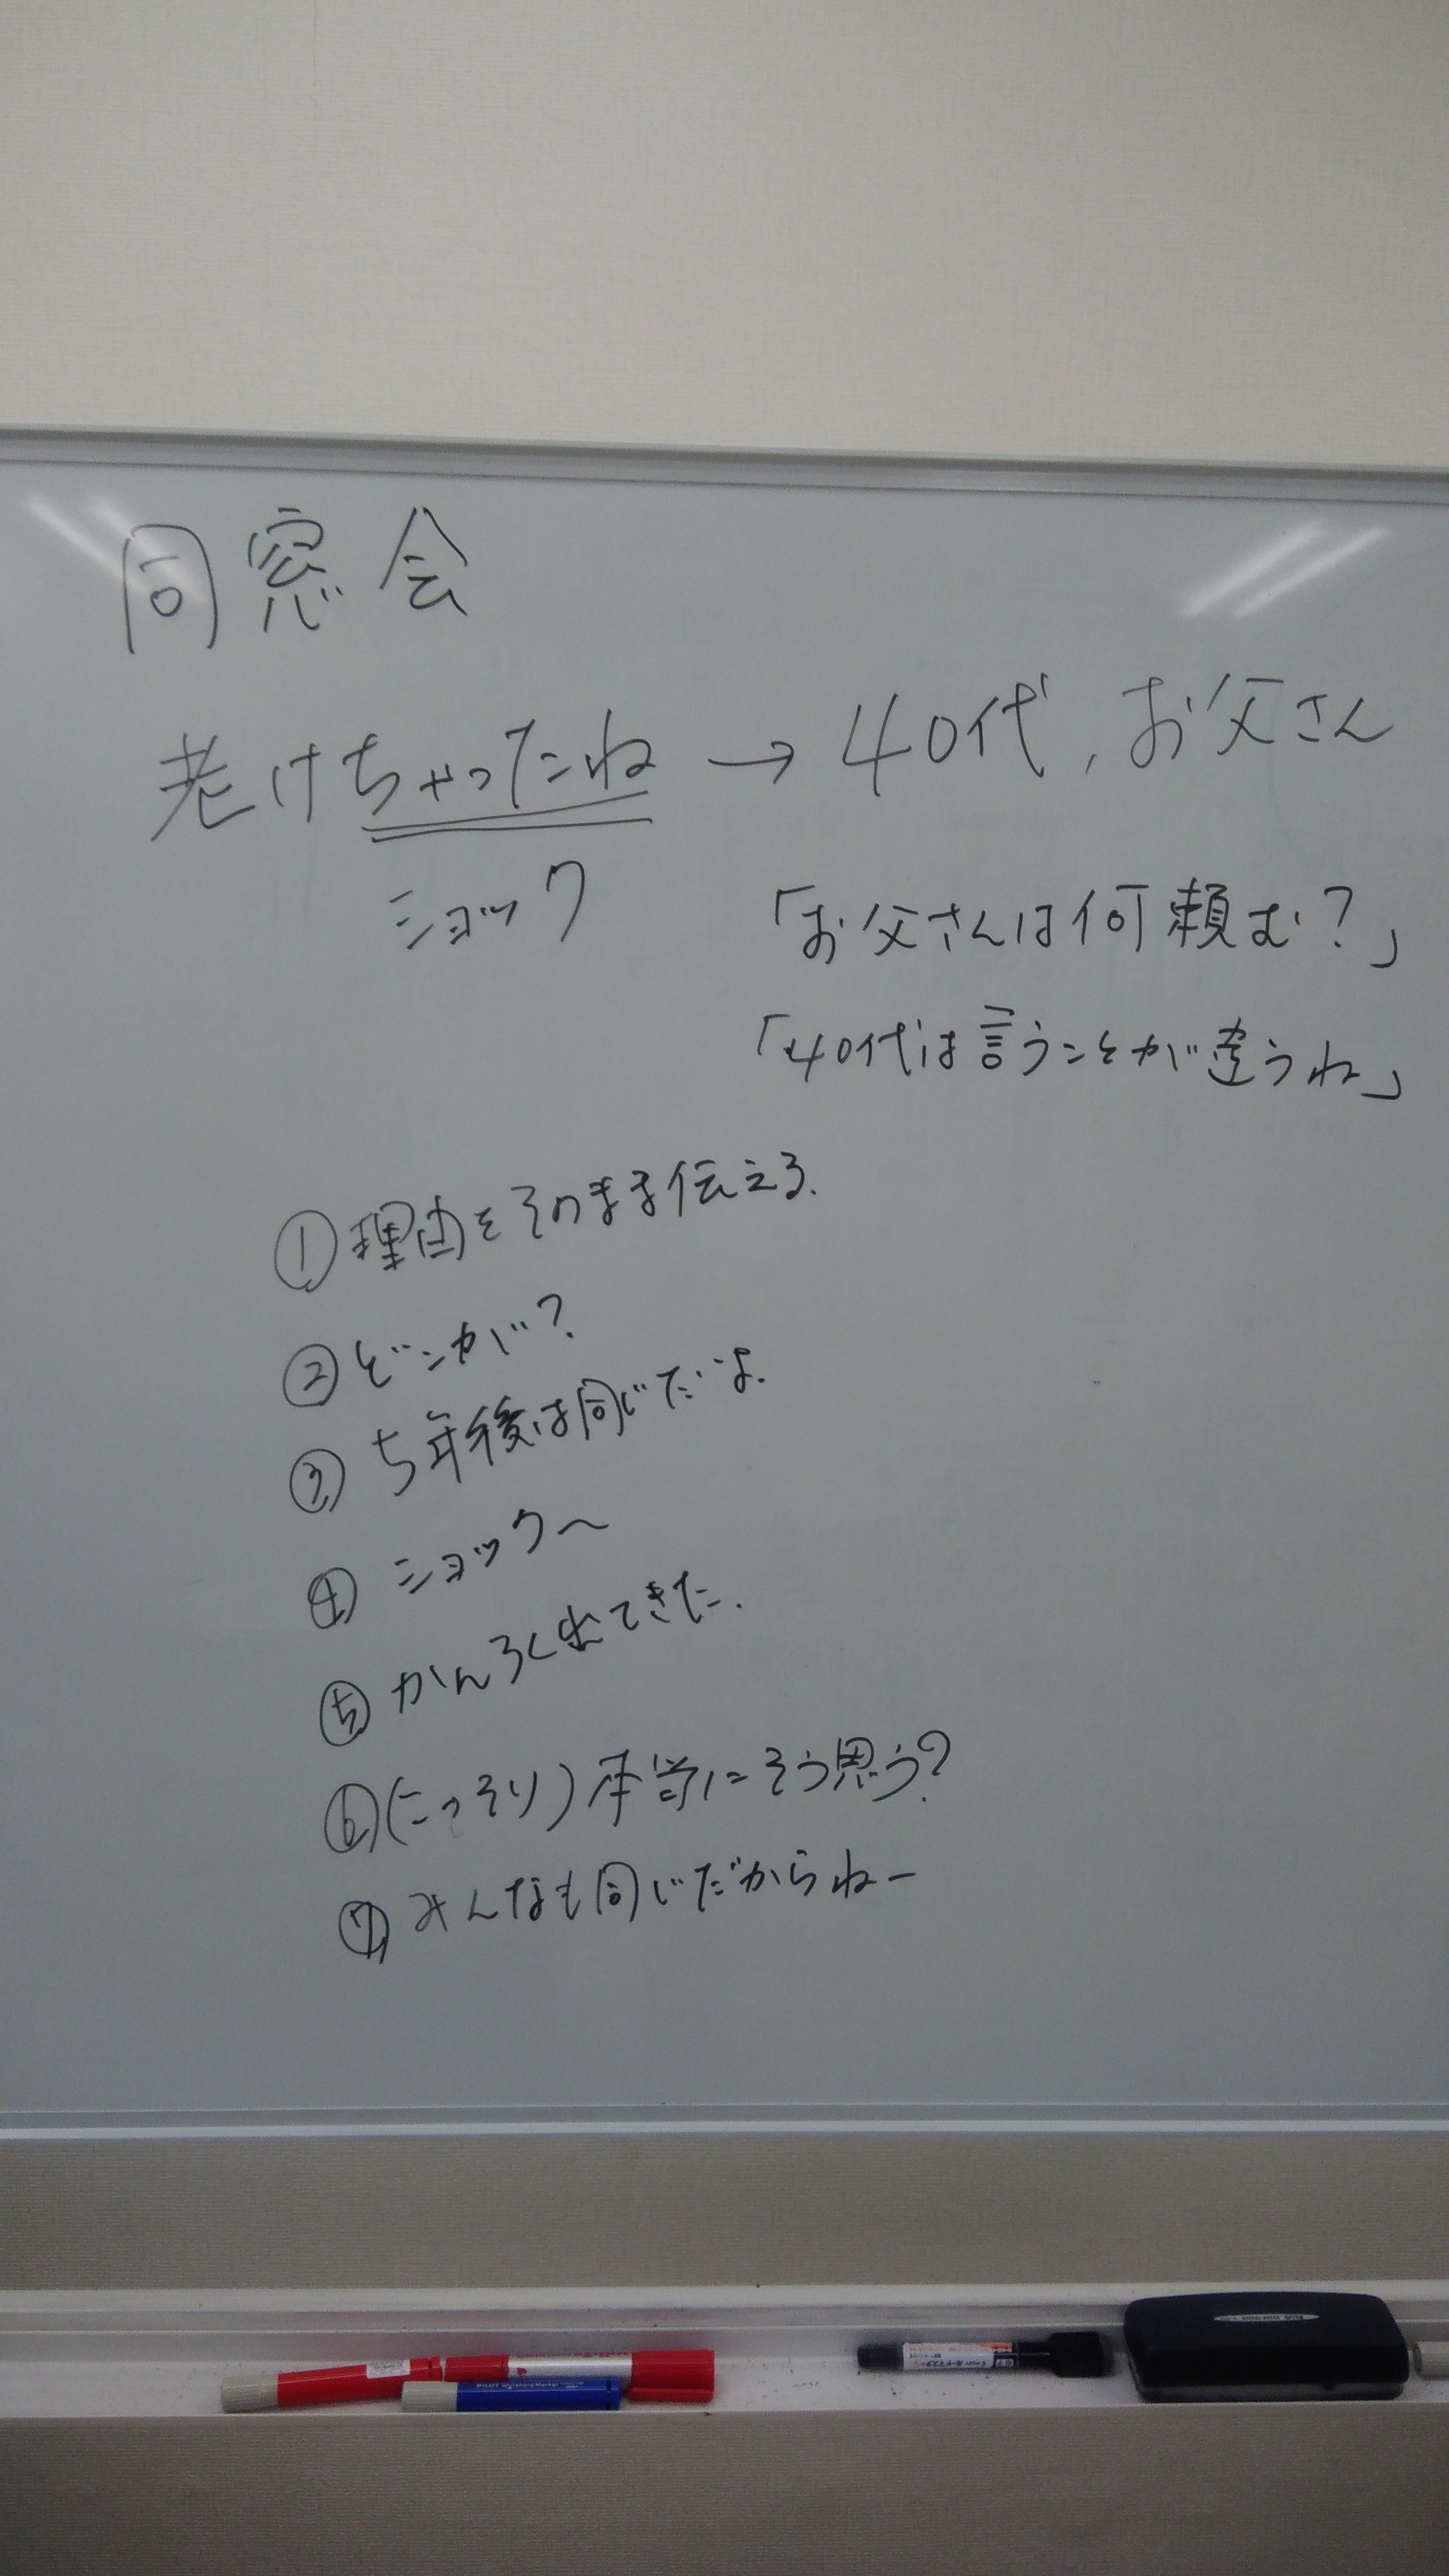 同窓会
老けちゃったね → 40代, お父さん
ショック
「お父さんは何頼む?」
「40代は言うことが違うね」
① 理由をそのまま伝える.
② どこが?
③ 5年後は同じだよ.
④ ショック〜
⑤ かんろく出てきた.
⑥ (こっそり) 本当にそう思う?
⑦ みんなも同じだからねー
PILOT
PLUS